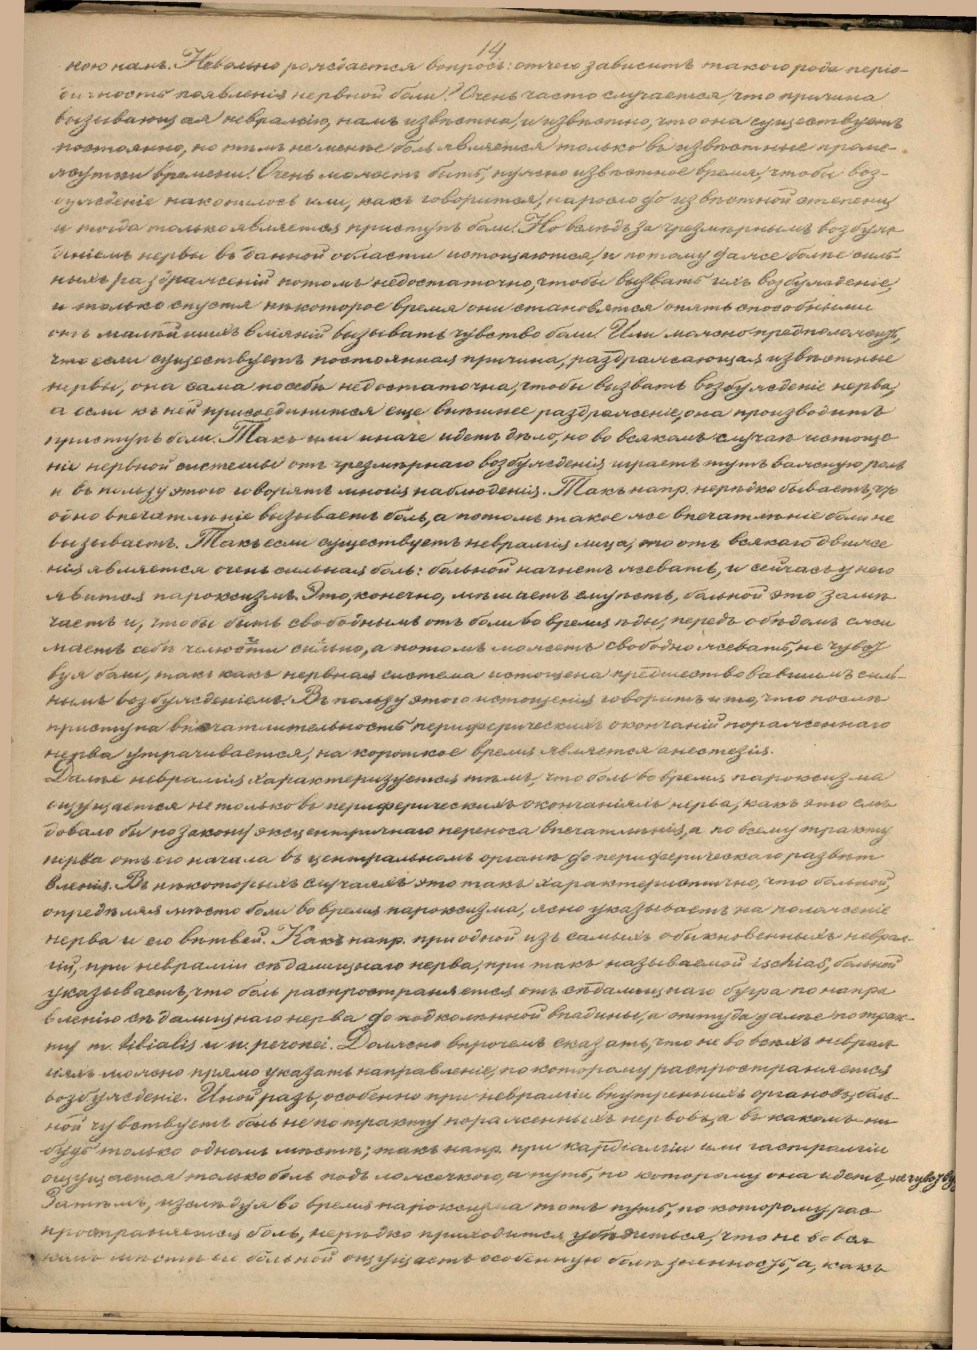 14
ною намъ. Невольно рождается вопросъ: отчего зависитъ такого рода періо-
дичность появленія нервной боли? Очень часто случается, что причина
вызывающая невралгію, намъ извѣстна, и извѣстно, что она существуетъ
постоянно, но тѣмъ не менѣе боль является только въ извѣстные проме-
жутки времени. Очень можетъ быть, нужно извѣстное время, чтобы воз-
бужденіе накопилось или, какъ говорится, наросло до извѣстной степени
и тогда только является приступъ боли. Но вслѣдъ за чрезмѣрнымъ возбуж-
деніемъ нервы въ данной области истощаются, и потому даже болѣе силь-
ныхъ раздраженій потомъ недостаточно, чтобы вызвать ихъ возбужденіе,
и только спустя нѣкоторое время они становятся опять способными
отъ малѣйшихъ вліяній вызывать чувство боли. Или можно предположить,
что если существуетъ постоянная причина, раздражающая извѣстные
нервы, она сама по себѣ недостаточна, чтобы вызвать возбужденіе нерва,
а если къ ней присоединится еще внѣшнее раздраженіе, она производитъ
приступъ боли. Такъ или иначе идетъ дѣло, но во всякомъ случаѣ истоще
ніе нервной системы отъ чрезмѣрнаго возбужденія играетъ тутъ важную роль
и въ пользу этого говорятъ многія наблюденія. Такъ напр. нерѣдко бываетъ, что
одно впечатлѣніе вызываетъ боль, а потомъ такое же впечатлѣніе боли не
вызываетъ. Такъ если существуетъ невралгія лица, то отъ всякаго движе
нія является очень сильная боль: больной начнетъ жевать, и сейчасъ у него
явится пароксизмъ. Это, конечно, мѣшаетъ ему ѣсть, больной это замѣ
чаетъ и, чтобы быть свободнымъ отъ боли во время ѣды, передъ обѣдомъ сжи
маетъ себѣ челюсти сильно, а потомъ можетъ свободно жевать, не чувст
вуя боли, такъ какъ нервная система истощена предшествовавшимъ силь-
нымъ возбужденіемъ. Въ пользу этого истощенія говоритъ и то, что послѣ
приступа впечатлительность периферическихъ окончаній пораженнаго
нерва утрачивается, на короткое время является анестезія.
Далѣе невралгія характеризуется тѣмъ, что боль во время пароксизма
ощущается не только въ периферическихъ окончаніяхъ нерва, какъ это слѣ
довало бы по закону эксцентричнаго переноса впечатлѣнія, а по всему тракту
нерва отъ его начала въ центральномъ органѣ до периферическаго развѣт
вленія. Въ нѣкоторыхъ случаяхъ это такъ характеристично, что больной,
опредѣляя мѣсто боли во время пароксизма, ясно указываетъ на положеніе
нерва и его вѣтвей. Какъ напр. при одной изъ самыхъ обыкновенныхъ неврал-
гій, при невралгіи сѣдалищнаго нерва, при такъ называемой ischias, больной
указываетъ, что боль распространяется отъ сѣдалищнаго бугра по напра
вленію сѣдалищнаго нерва до подколѣнной впадины, а оттуда далѣе по трак-
ту n. tibialis и n. peronei. Должно впрочемъ сказать, что не во всѣхъ неврал
гіяхъ можно прямо указать направленіе, по которому распространяется
возбужденіе. Иной разъ, особенно при невралгіи внутреннихъ органовъ, боль-
ной чувствуетъ боль не по тракту пораженныхъ нервовъ, а въ какомъ-ни
будь только одномъ мѣстѣ; такъ напр. при кардіалгіи или гастралгіи
ощущается только боль подъ ложечкою, а путь, по которому она идетъ, не чувству
Затѣмъ, изслѣдуя во время пароксизма тотъ путь, по которому рас
пространяется боль, нерѣдко приходится убѣдиться, что не во вся
комъ мѣстѣ ея больной ощущаетъ особенную болѣзненность, а, какъ